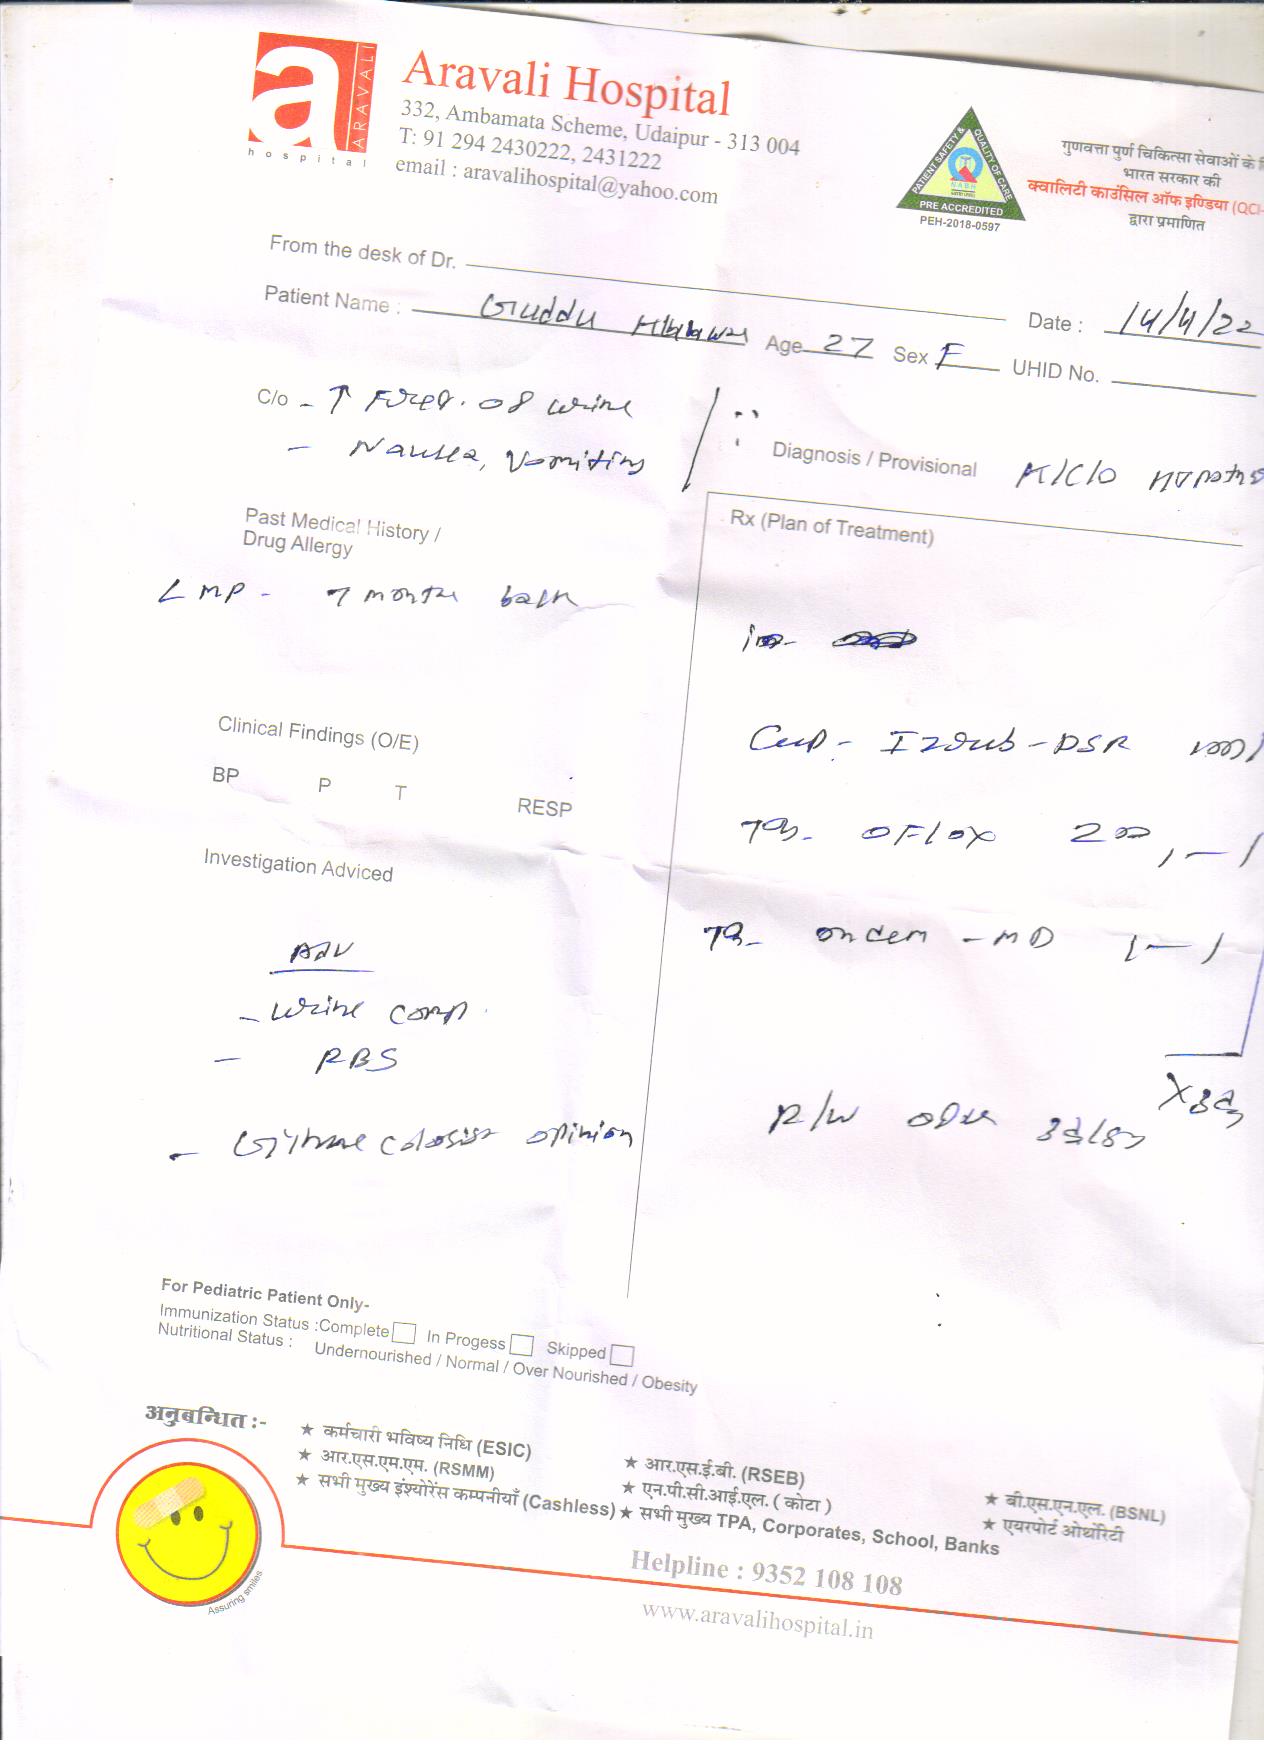 a ARAVALI
hospital
Aravali Hospital
332, Ambamata Scheme, Udaipur - 313 004
T: 91 294 2430222, 2431222
email : aravalihospital@yahoo.com
PATIENT SAFETY & QUALITY OF CARE
NABH
PRE ACCREDITED
PEH-2018-0597
गुणवत्ता पुर्ण चिकित्सा सेवाओं के
भारत सरकार की
क्वालिटी काउंसिल ऑफ इण्डिया (QCI-
द्वारा प्रमाणित
From the desk of Dr.
Date : 14/4/22
Patient Name : Guddu Age 27 Sex F UHID No.
C/o - ↑ Freq. of urine
- Nausea, Vomiting
Diagnosis / Provisional K/C/O
Past Medical History /
Drug Allergy
Rx (Plan of Treatment)
LMP - 7 months back
Clinical Findings (O/E)
BP P T RESP
Cap- Izdub-DSR
Investigation Adviced
Tab- OFlox 200, 1-1
Adv
Tab- ondem -MD 1-1
- Urine comp.
- RBS
X3d
- Gynaecologist opinion
R/w after 3days
For Pediatric Patient Only-
Immunization Status :Complete In Progess Skipped
Nutritional Status : Undernourished / Normal / Over Nourished / Obesity
अनुबन्धित :-
★ कर्मचारी भविष्य निधि (ESIC)
★ आर.एस.एम.एम. (RSMM)
★ सभी मुख्य इंश्योरेंस कम्पनीयाँ (Cashless)
★ आर.एस.ई.बी. (RSEB)
★ एन.पी.सी.आई.एल. ( कोटा )
★ सभी मुख्य TPA, Corporates, School, Banks
★ बी.एस.एन.एल. (BSNL)
★ एयरपोर्ट ओथोरिटी
Assuring smiles
Helpline : 9352 108 108
www.aravalihospital.in